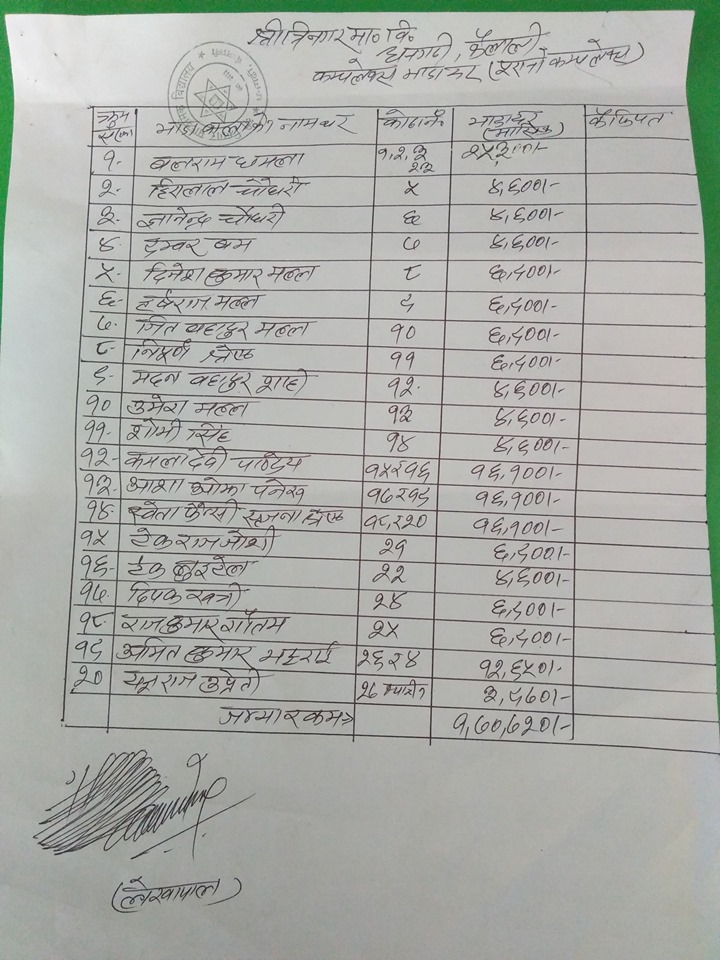 श्री त्रिनगर मा॰ वि॰
धनगढी, कैलाली
कम्पलेक्स भाडा दर (पुरानो कम्पलेक्स)
क्रम संख्या भाडावालाको नाम थर कोठा नं. भाडादर (मासिक) कैफियत
१. बलराम ढमला १,२,३ २३
२. हिरालाल चौधरी ५ ४,६००।-
३. ज्ञानेन्द्र चौधरी ६ ४,६००।-
४. डम्बर बम ७ ४,६००।-
५. दिनेश कुमार मल्ल ८ ६,९००।-
६. हर्षराज मल्ल ९ ६,९००।-
७. जित बहादुर मल्ल १० ६,९००।-
८. श्रेष्ठ ११ ६,९००।-
९. मदन बहादुर शाही १२. ४,६००।-
१० उमेश मल्ल १३ ४,६००।-
११. शोभी सिंह १४ ४,६००।-
१२. कमलादेवी पाण्डेय १५ र १६ १६,१००।-
१३. आशा ओझा १७ र १९ १६,१००।-
१४. श्वेता फेन्सी सृजना श्रेष्ठ १८,२२० १६,१००।-
१५ टेकराज जोशी २१ ६,९००।-
१६. टेक लुइटेल २२ ४,६००।-
१७. दिपक खत्री २४ ६,९००।-
१८. राजकुमार गौतम २५ ६,९००।-
१९ अमित कुमार भट्टराई २६ र ४ १२,६५०।-
२० यज्ञराज उप्रेती २७
जम्मा रकम १,७०,६२०।-
(लेखापाल)